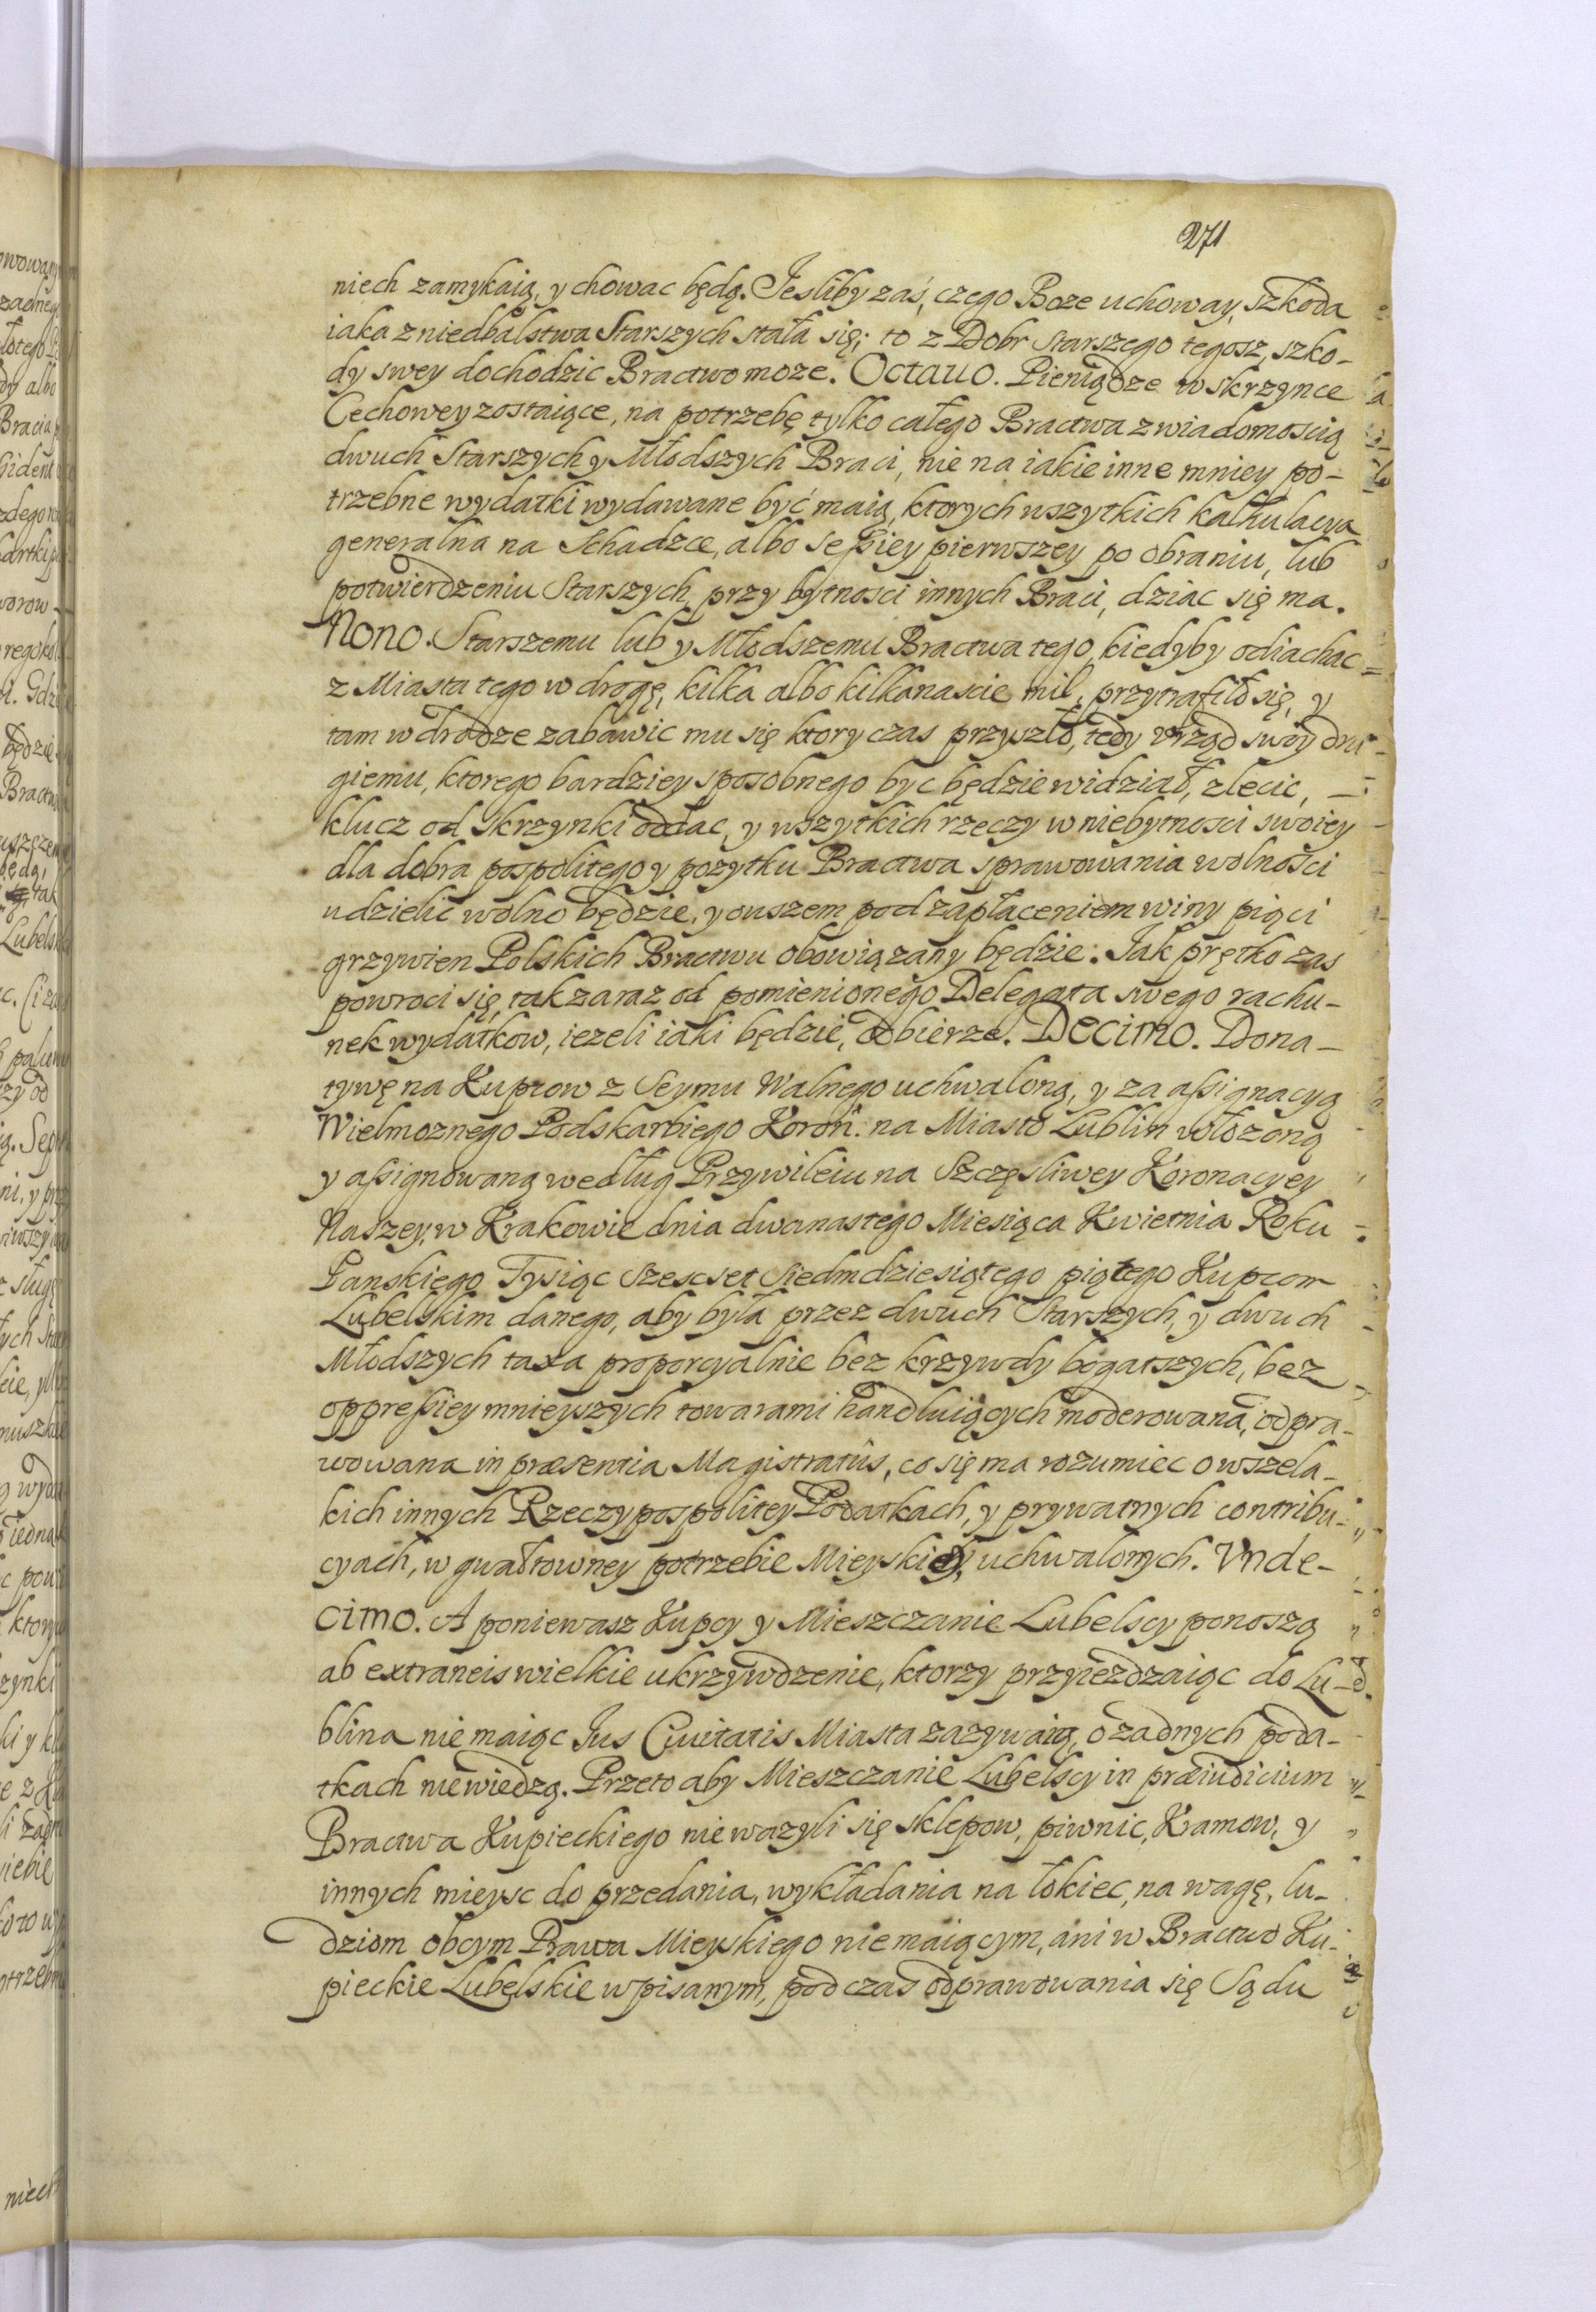 271
niech zamykaią, y chowac będą. Jesliby zaś, czego Boze uchoway, szkoda
iaka z niedbalstwa Starszych stała się; to z Dobr Starszego tegosz, szko-
dy swey dochodzic Bractwo moze. Octauo. Pieniądze w skrzynce
Cechowey zostaiące, na potrzebę tylko całego Bractwa z wiadomoscią
dwuch Starszych y Młodszych Braci, nie na iakie inne mniey po-
trzebne wydatki wydawane być maią, ktorych wszytkich kalkulacya
generalna na Schadzce, albo Seßiey pierwszey po obraniu, lub
potwierdzeniu Starszych, przy bytnosci innych Braci, dziac się ma.
Nono. Starszemu lub y Młodszemu Bractwa tego, kiedyby odiachac
z Miasta tego w drogę, kilka albo kilkanascie mil, przytrafiło się, y
tam w drodze zabawic mu się ktory czas przyszło, tedy vrząd swoy dru-
giemu, ktorego bardziey sposobnego byc będzie widział, zlecic, —
klucz od skrzynki oddac, y wszytkich rzeczy w niebytnosci swoiey
dla dobra pospolitego y pozytku Bractwa sprawowania wolności
udzielic wolno będzie, y owszem pod zapłaceniem winy pięci
grzywien Polskich Bractwu obowiązany będzie: Jak prętko zas
powroci się, tak zaraz od pomienionego Delegata swego rachu-
nek wydatkow, iezeli iaki będzie, odbierze. Decimo. Dona-
tywę na Kupcow z Seymu Walnego uchwaloną, y za aßignacyą
Wielmoznego Podskarbiego Koron. na Miasto Lublin włozoną
y aßignowaną według Przywileiu na Szczęsliwey Koronacyey
Naszey, w Krakowie dnia dwunastego Miesiąca Kwietnia Roku
Panskiego Tysiąc Szescset Siedmdziesiątego piątego Kupcom
Lubelskim danego, aby była przez dwuch Starszych, y dwuch
Młodszych taxa proporcyalnie bez krzywdy bogatszych, bez
oppreßiey mnieyszych towarami handluiących moderowana, odpra-
wowana in præsentia Magistratûs, co się ma rozumiec o wszela-
kich innych Rzeczypospolitey Podatkach, y prywatnych contribu-
cyach, w gwałtowney potrzebie Mieyskiey, uchwalonych. Vnde-
cimo. A poniewasz Kupcy y Mieszczanie Lubelscy ponoszą
ab extraneis wielkie ukrzywdzenie, ktorzy przyiezdzaiąc do Lu-
blina nie maiąc Jus Ciuitatis Miasta zazywaią, o zadnych poda-
tkach niewiedzą. Przeto aby Mieszczanie Lubelscy in præiudicium
Bractwa Kupieckiego nie wazyli się sklepow, piwnic, Kramow, y
innych mieysc do przedania, wykładania na łokiec, na wagę, lu-
dziom obcym Prawa Mieyskiego nie maiącym, ani w Bractwo Ku-
pieckie Lubelskie wpisanym, pod czas odprawowania się Sądu
niech